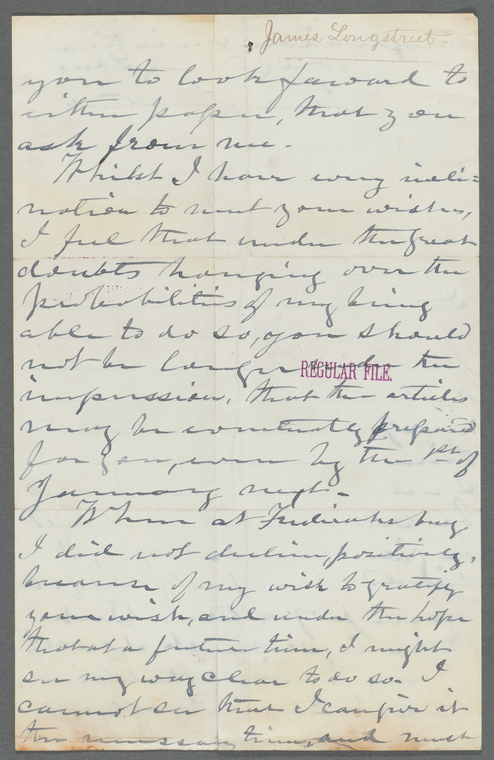 James Longstreet
you to look forward to
written paper, that you
ask from me.
Whilst I have every incli=
nation to meet your wishes,
I feel that under the great
doubts hanging over the
probabilities of my being
able to do so, you should
not be longer under the
REGULAR FILE.
impression, that the articles
may be completely prepared
for you, even by the 1st of
January next.
When at Fredericksburg
I did not decline, positively,
because of my wish to gratify
your wish, and under the hope
that at a future time, I might
see my way clear to do so. I
cannot see that I can give it
the necessary time, and must